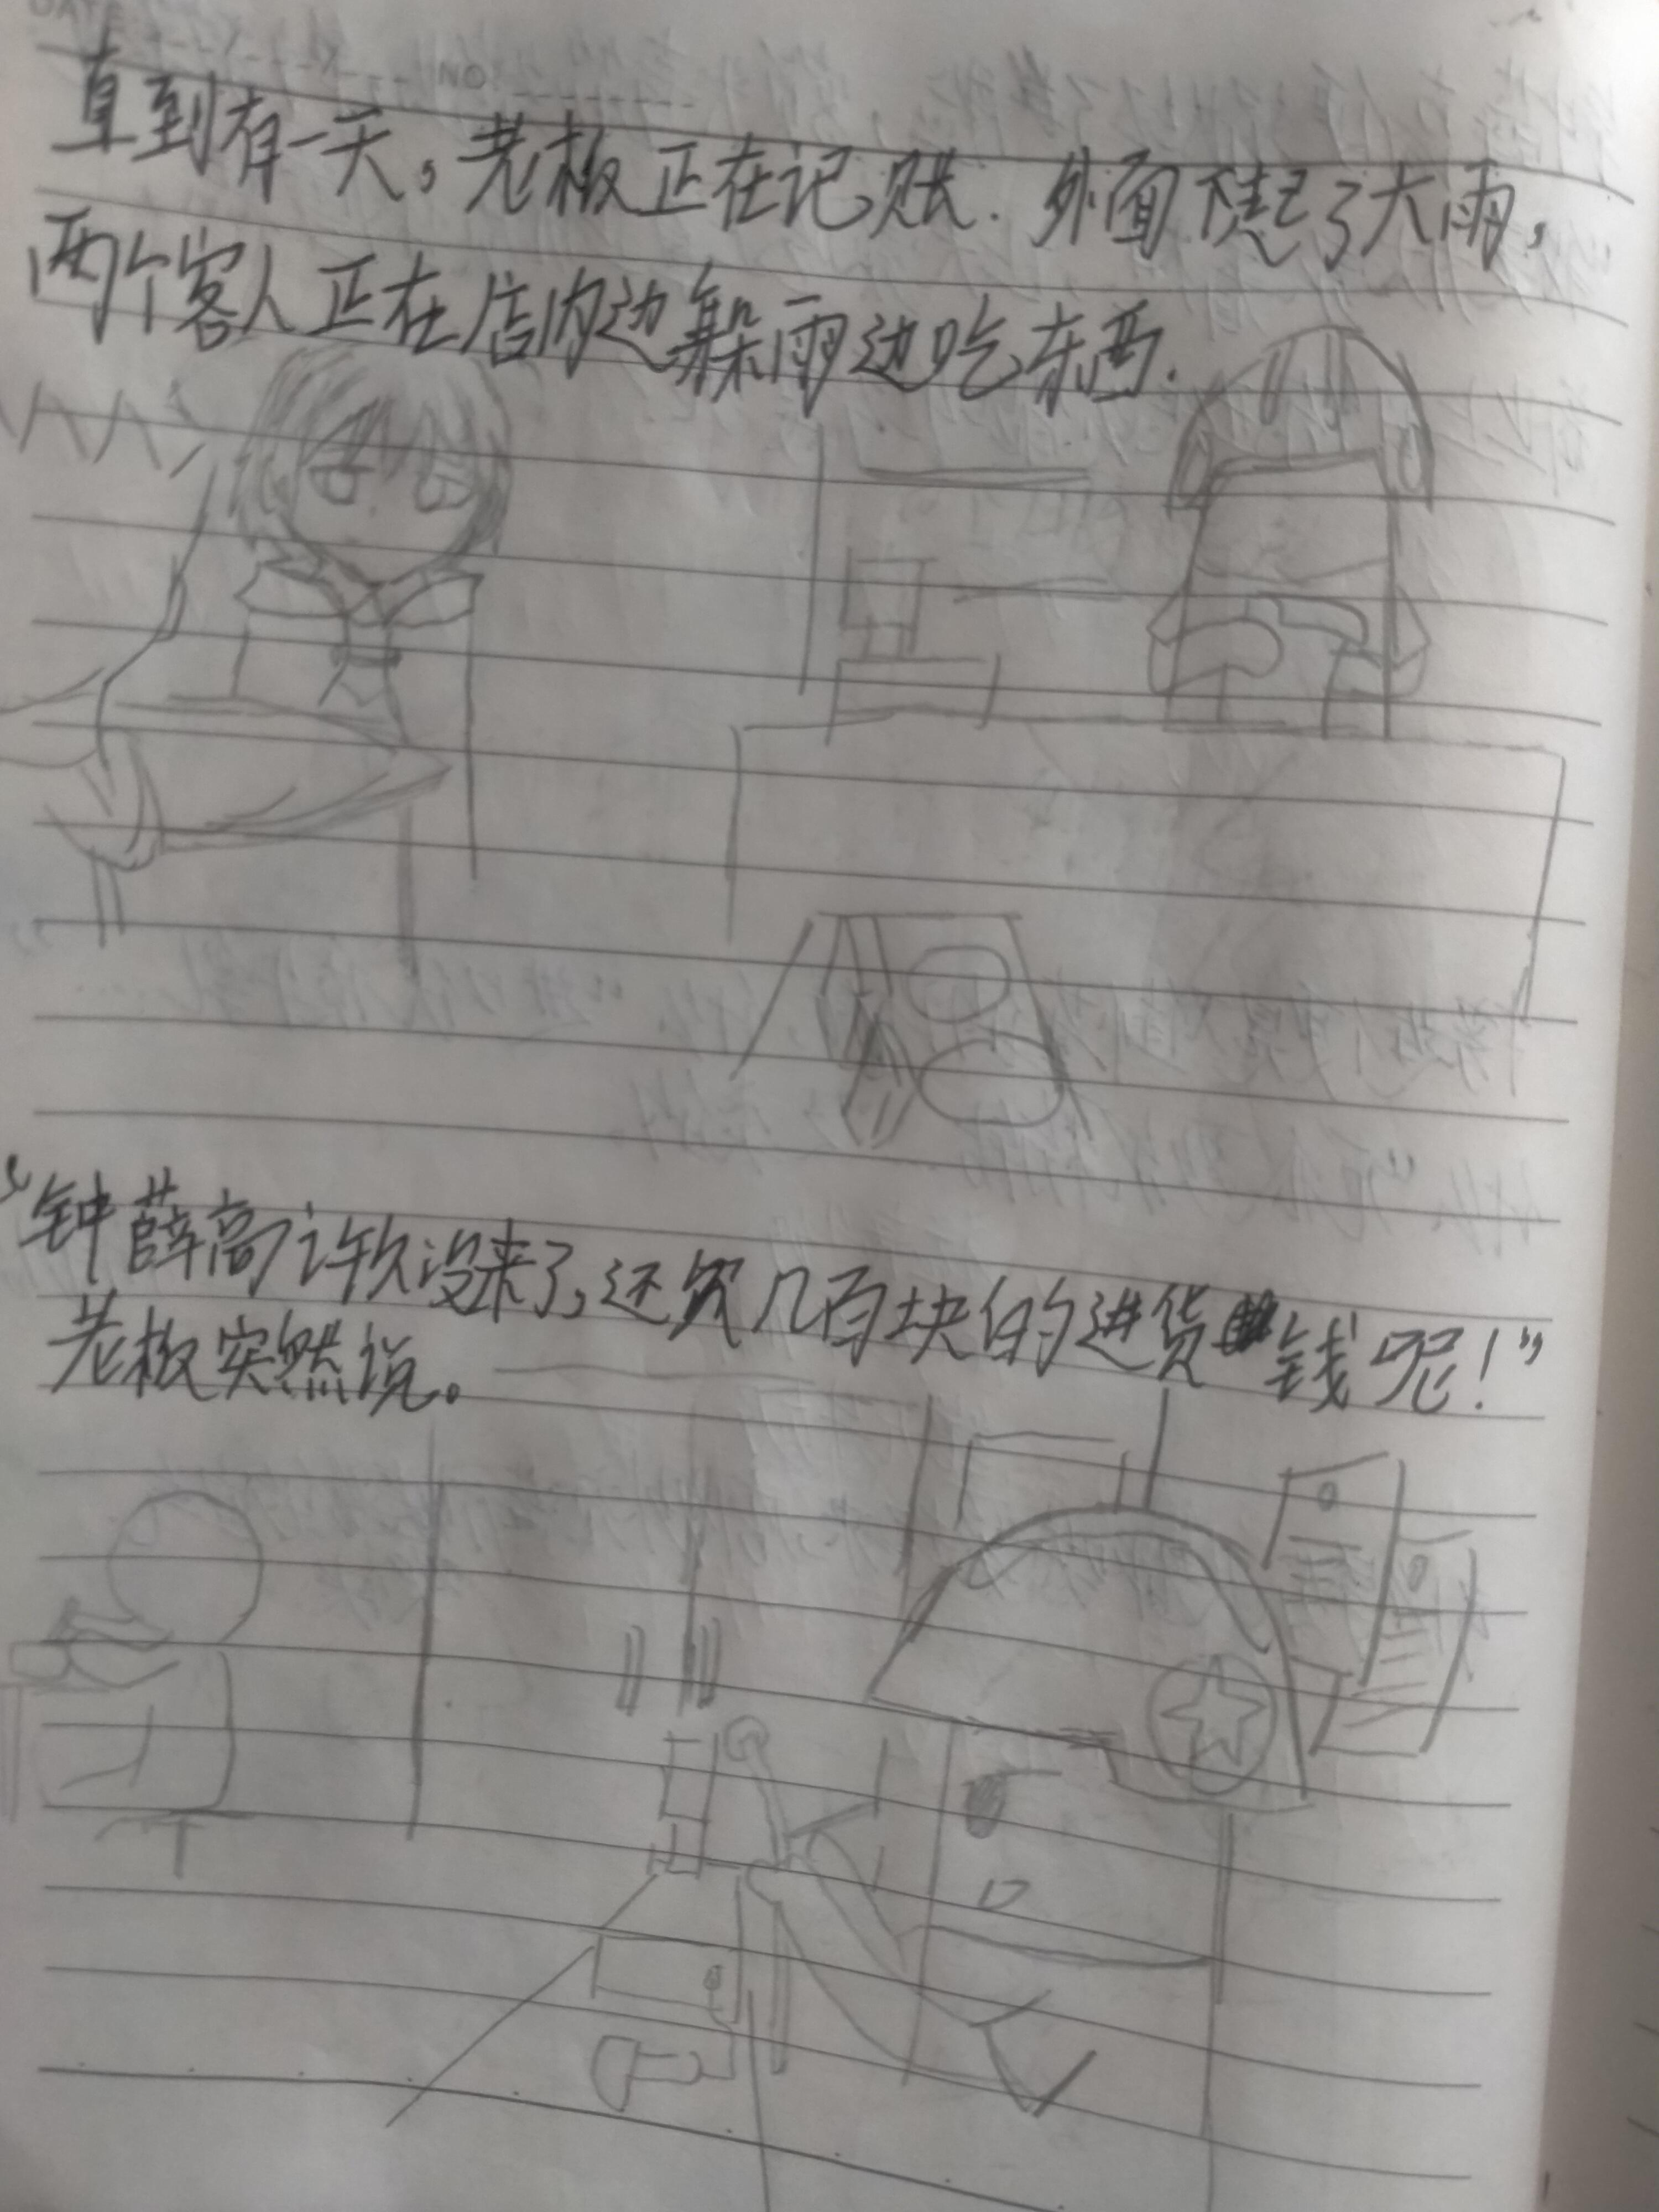 直到有一天，老板正在记账．外面下起了大雨，
两个客人正在店内边躲雨边吃东西．
“钟薛高许久没来了，还欠几百块的进货钱呢！”
老板突然说。